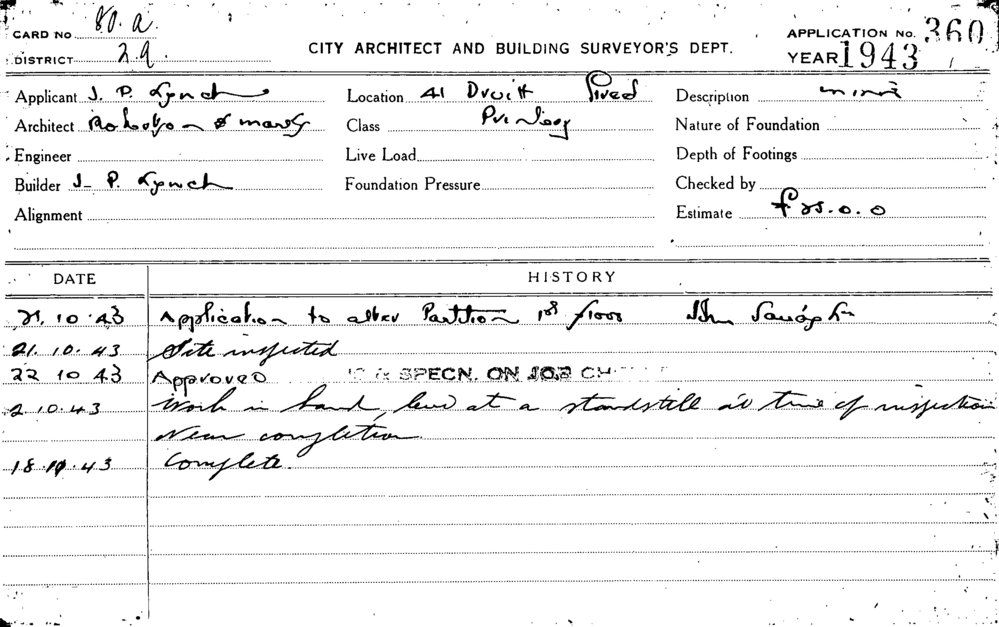 CARD NO 80.a.
DISTRICT 29.
CITY ARCHITECT AND BUILDING SURVEYOR'S DEPT.
APPLICATION No. 360
YEAR 1943
Applicant J. P. Lynch
Location 41 Druitt Street
Description minor
Architect Robertson & Marks
Class
Nature of Foundation
Engineer
Live Load
Depth of Footings
Builder J. P. Lynch
Foundation Pressure
Checked by
Alignment
Estimate £25.0.0
DATE HISTORY
21.10.43 Application to alter Partition 1st floor
21.10.43 Site inspected
22 10 43 Approved SPECN. ON JOB
2 10.43 Work in hand, but at a standstill at time of inspection
Near completion.
18.10.43 Complete.